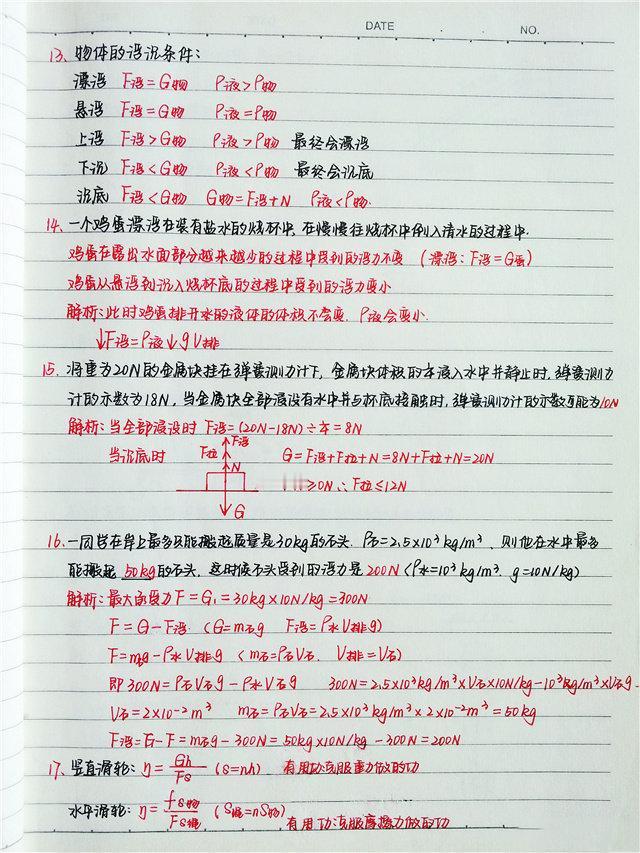 DATE NO.
13、物体的浮沉条件:
漂浮 F浮=G物 ρ液>ρ物
悬浮 F浮=G物 ρ液=ρ物
上浮 F浮>G物 ρ液>ρ物 最终会漂浮
下沉 F浮<G物 ρ液<ρ物 最终会沉底
沉底 F浮<G物 G物=F浮+N ρ液<ρ物.
14、一个鸡蛋漂浮在装有盐水的烧杯中,在慢慢往烧杯中倒入清水的过程中.
鸡蛋在露出水面部分越来越少的过程中受到的浮力不变 (漂浮:F浮=G蛋)
鸡蛋从悬浮到沉入烧杯底的过程中受到的浮力变小
解析:此时鸡蛋排开水的液体的体积不会变.ρ液会变小.
↓F浮=ρ液↓gV排
15、将重为20N的金属块挂在弹簧测力计下,金属块体积的 浸入水中并静止时,弹簧测力
计的示数为18N,当金属块全部浸没有水中并与杯底接触时,弹簧测力计的示数可能为10N
解析:当全部浸没时 F浮=(20N-18N)÷ =8N
F浮
F拉
当沉底时 N G=F浮+F拉+N=8N+F拉+N=20N
>0N ∴F拉≤12N
G
16、一同学在岸上最多只能搬起质量是30kg的石头.ρ石=2.5×10³kg/m³、则他在水中最多
能搬起 50kg的石头,这时候石头受到的浮力是200N(ρ水=10³kg/m³.g=10N/kg)
解析:最大 力F=G₁=30kg×10N/kg=300N
F=G-F浮.(G=m石g F浮=ρ水V排g)
F=m石g-ρ水V排g (m石=ρ石V石. V排=V石)
即300N=ρ石V石g-ρ水V石g 300N=2.5×10³kg/m³×V石×10N/kg-10³kg/m³×V石g.
V石=2×10⁻²m³ m石=ρ石V石=2.5×10³kg/m³×2×10⁻²m³=50kg
F浮=G-F=m石g-300N=50kg×10N/kg-300N=200N
17、竖直滑轮:η=Gh/Fs (s=nh) 有用功克服重力做的功
水平滑轮:η=fs物/Fs绳 (S绳=nS物) 有用功克服摩擦力做的功